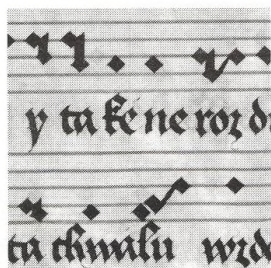 y take ne roz d
ta chwalu wzd